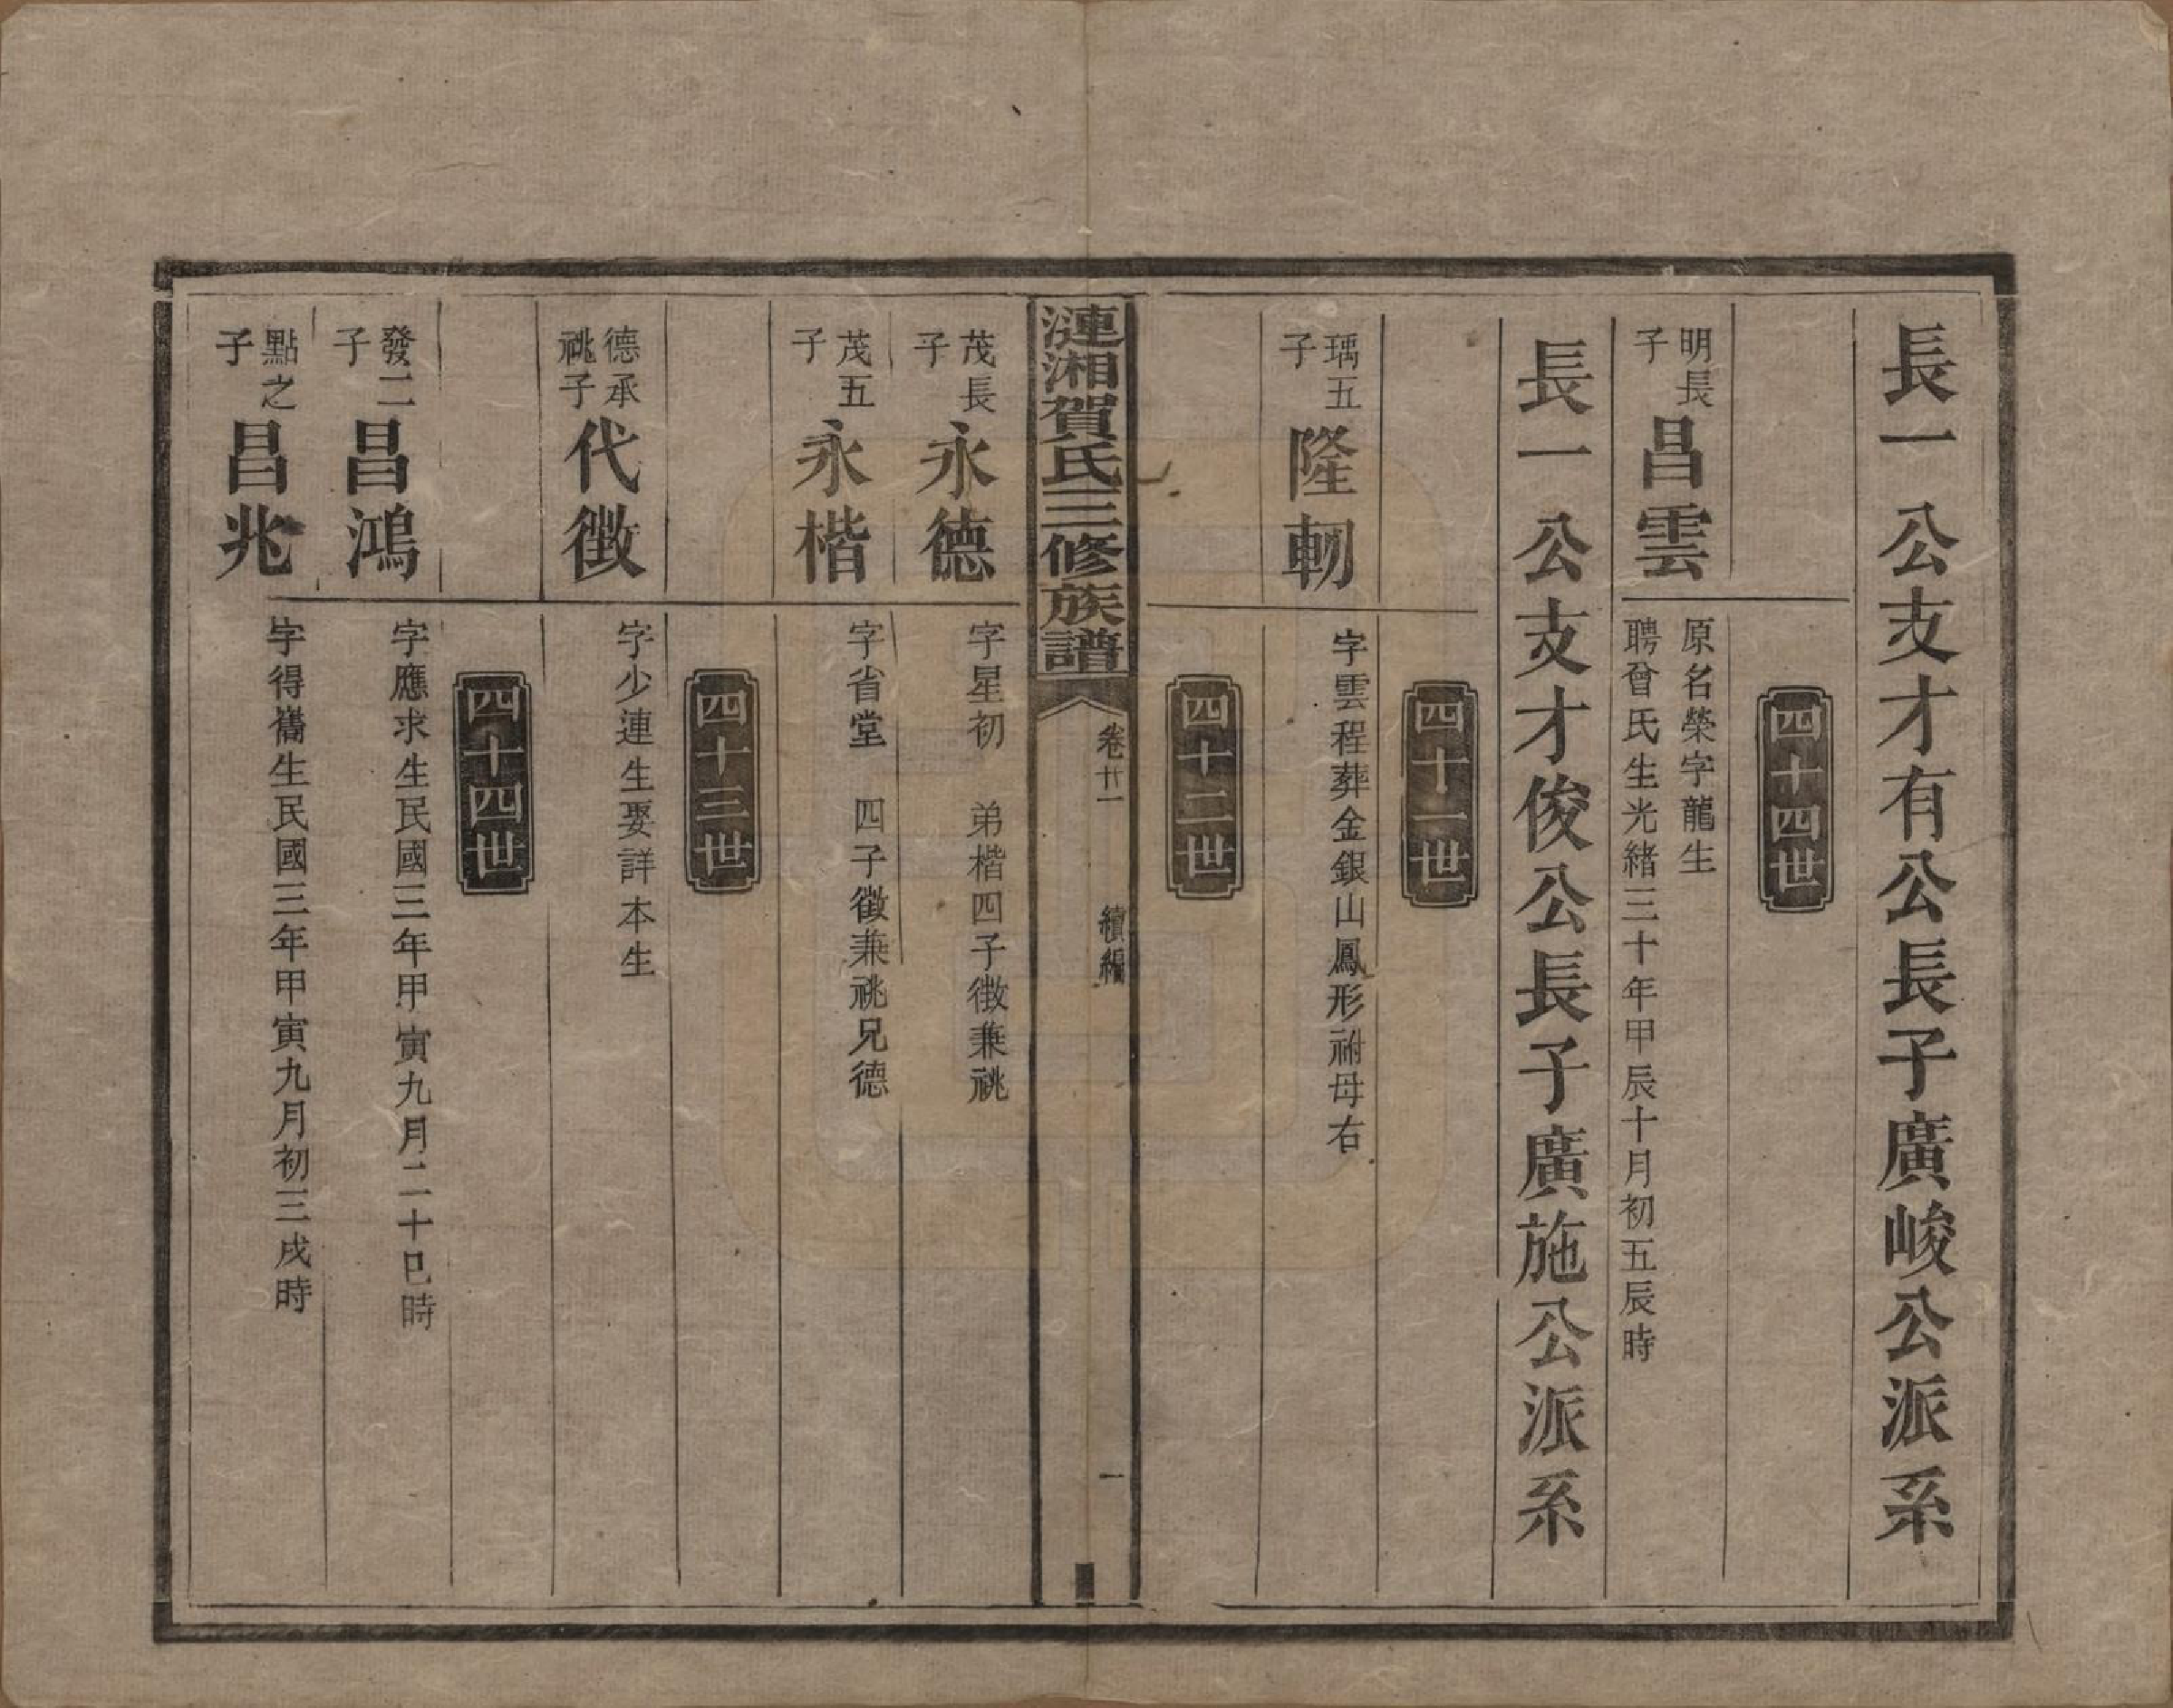 長一公支才有公長子廣峻公派系
四十四世
明長子
昌雲
原名榮字龍生
聘曾氏生光緒三十年甲辰十月初五辰時
長一公支才俊公長子廣施公派系
四十一世
瑀五子
隆軔
字雲程葬金銀山鳳形祔母右
四十二世
漣湘賀氏三修族譜
卷廿一
續編
一
茂長子
永德
字星初 弟楷四子徵兼祧
茂五子
永楷
字省堂 四子徵兼祧兄德
四十三世
德承祧子
代徵
字少連生娶詳本生
四十四世
發二子
昌鴻
字應求生民國三年甲寅九月二十巳時
點之子
昌兆
字得巂生民國三年甲寅九月初三戌時